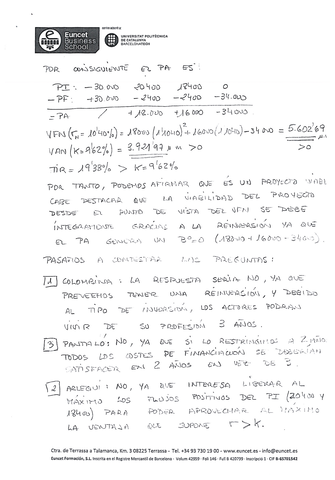 Euncet
Business
School
UNIVERSITAT POLITÈCNICA
DE CATALUNYA
BARCELONATECH
POR CONSIGUIENTE EL PA ES:
PI: -30.000 20400 18400 0
-PF: +30.000 -2400 -2400 -34.000
=PA / +18.000 +16000 -34000
VAN (K=9'62%) = 3.921'97 >0
TIR = 19'38% > K=9'62%
POR TANTO, PODEMOS AFIRMAR QUE ES UN PROYECTO VIABLE
CABE DESTACAR QUE LA VIABILIDAD DEL PROYECTO
DESDE EL PUNTO DE VISTA DEL VFN SE DEBE
INTEGRAMENTE GRACIAS A LA REINVERSIÓN YA QUE
EL PA GENERA UN Bº=0 (18000+16000-34000).
PASAMOS A CONTESTAR LAS PREGUNTAS:
1 COLOMBINA: LA RESPUESTA SERIA NO, YA QUE
PREVEEMOS TENER UNA REINVERSIÓN, Y DEBIDO
AL TIPO DE INVERSIÓN, LOS ACTORES PODRAN
VIVIR DE SU PROFESIÓN 3 AÑOS.
3 PANTALÓ: NO, YA QUE SI LO RESTRINGIMOS A 2 AÑOS
TODOS LOS COSTES DE FINANCIACIÓN SE DEBERIAN
SATISFACER EN 2 AÑOS EN VEZ DE 3.
2 ARLEQUÍ: NO, YA QUE INTERESA LIBERAR AL
MÁXIMO LOS FLUJOS POSITIVOS DEL PI (20400 Y
18400) PARA PODER APROVECHAR AL MÁXIMO
LA VENTAJA QUE SUPONE r>K.
Ctra. de Terrassa a Talamanca, Km. 3 08225 Terrassa - Tel. +34 93 730 19 00 - info@euncet.es - euncet.es